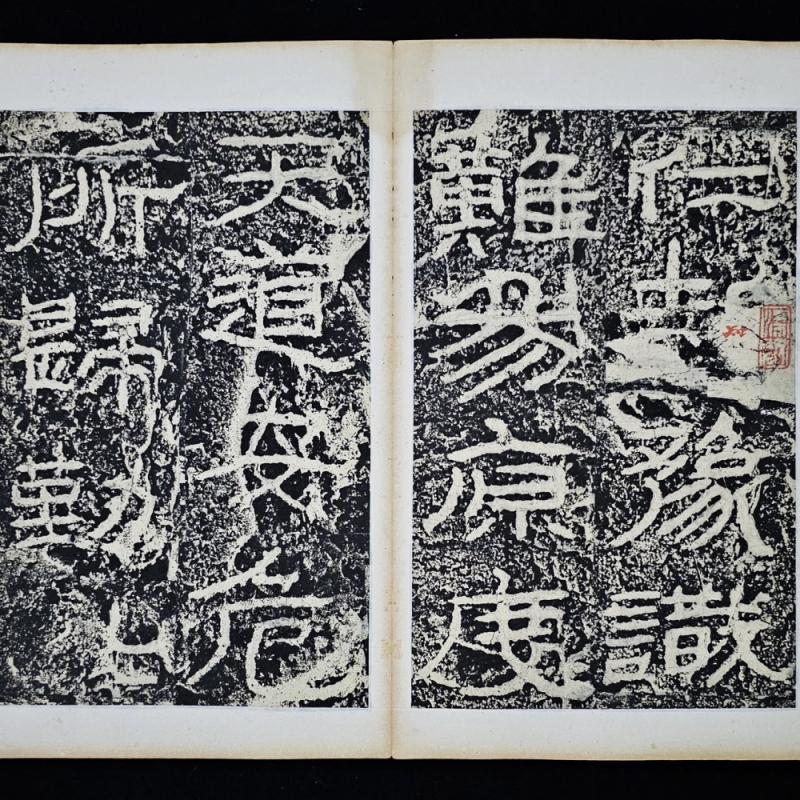 仁知豫識
難易原度
天道安危
所歸勤